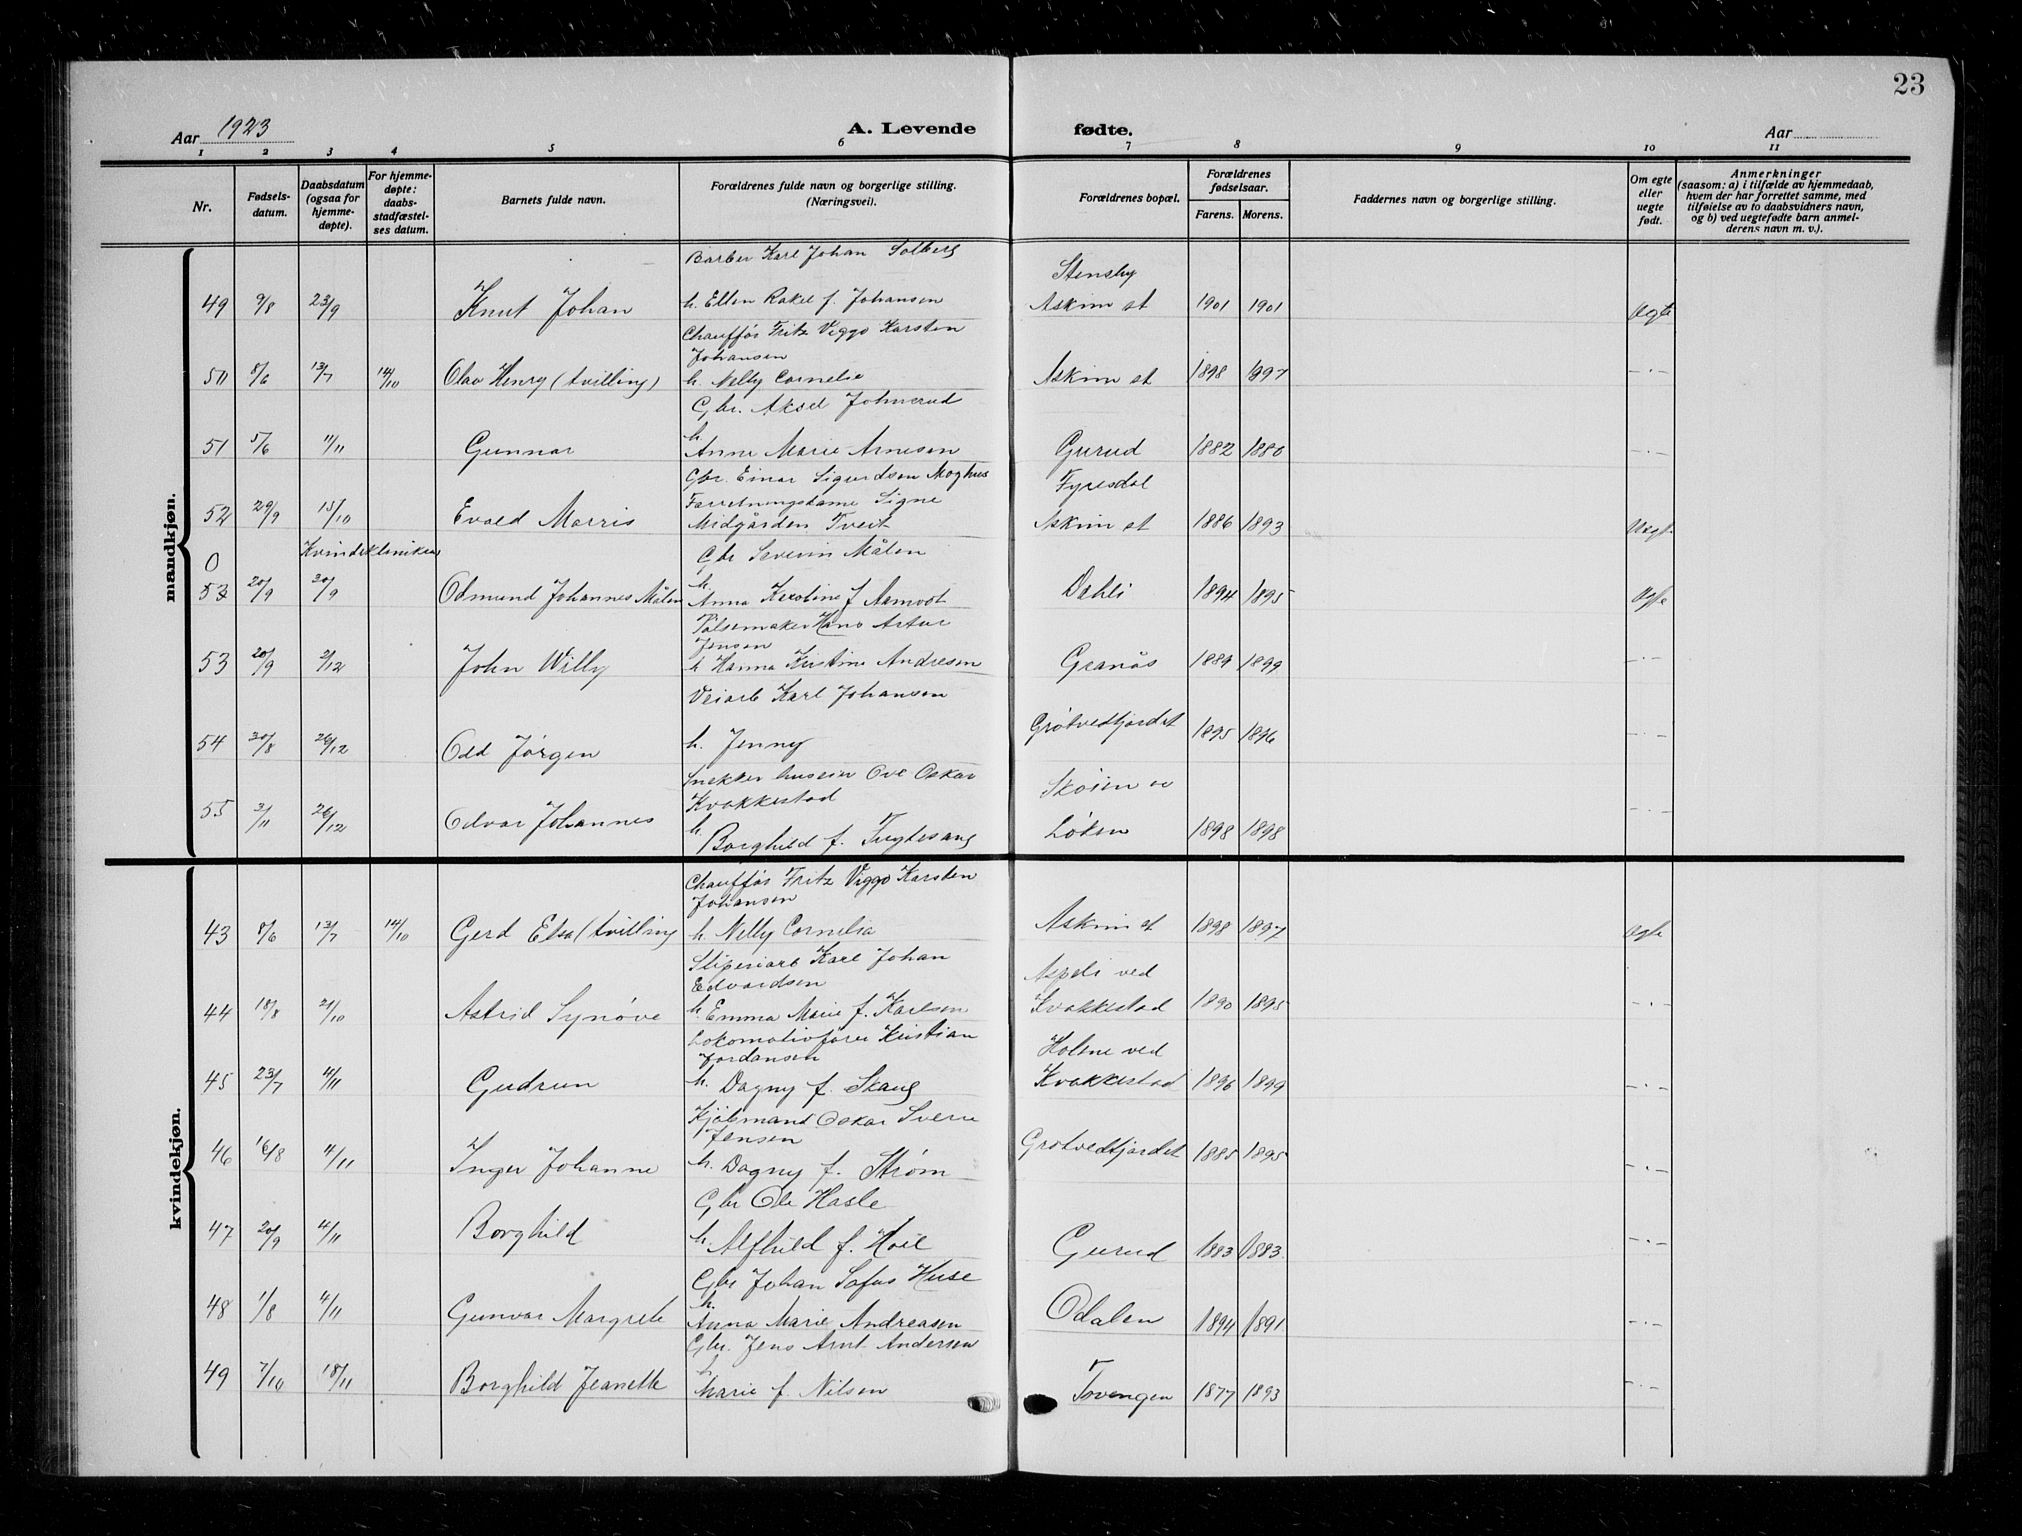 23
Aar 1923
A. Levende
fødte.
Aar
1 2 3 4 5 6 7 8 9 10 11
Nr.
Fødsels-
datum.
Daabsdatum
(ogsaa for
hjemme-
døpte).
For hjemme-
døpte:
daabs-
stadfæstel-
ses datum.
Barnets fulde navn.
Forældrenes fulde navn og borgerlige stilling.
(Næringsvei).
Forældrenes bopæl.
Forældrenes
fødselsaar.
Farens. Morens.
Faddernes navn og borgerlige stilling.
Om egte
eller
uegte
født.
Anmerkninger
(saasom: a) i tilfælde av hjemmedaab,
hvem der har forrettet samme, med
tilføielse av to daabsvidners navn,
og b) ved uegtefødte barn anmel-
derens navn m. v.).
mandkjøn.
Barber Karl Johan Solberg
Stensby
49 9/8 23/9 Knut Johan h. Ellen Rakel f. Johansen Askim st 1901 1901 Egte
Chauffør Fritz Viggo Karsten
Johansen
50 8/6 13/7 14/10 Olav Henry (tvilling) h. Nelly Cornelia Askim st 1898 1897 - . -
Gbr. Aksel Johnerud
h.
51 5/6 11/11 Gunnar Anne Marie Arnesen Gurud 1882 1880 - . -
Gbr. Einar Sigurdsen Moghus
Fyresdal
Forretningsdame Signe
52 29/9 15/10 Evald Morris Midgården Tveit Askim st 1886 1893 Uegte
0 Kvindekliniken
Gbr Severin Målen
h.
53 20/9 30/9 Odmund Johannes Målen Anna Karoline f. Aamodt Dahli 1894 1895 Egte
Pølsemaker Hans Artur
Jensen
53 20/9 2/12 John Willy h Hanna Kristine Andresen Granås 1889 1899 - . -
Veiarb Karl Johansen
Grøtvedtjordet
54 30/8 26/12 Odd Jørgen h. Jenny 1895 1896 - . -
Snekker huseier Ove Oskar
Skøien
Kvakkestad
h.
55 3/11 26/12 Odvar Johannes Borghild f. Fuglesang Løken 1898 1898 - . -
kvindekjøn.
Chauffør Fritz Viggo Karsten
Johansen
43 8/6 13/7 14/10 Gerd Elsa (tvilling h. Nelly Cornelia Askim st 1898 1897 Egte
Sliperiarb Karl Johan
Edvardsen
Aspeli ved
44 18/8 21/10 Astrid Synøve h. Emma Marie f. Karlsen Kvakkestad 1890 1895 - . -
Lokomotivfører Kristian
Jordansen
Holene ved
45 23/7 4/11 Gudrun h. Dagny f. Skaug Kvakkestad 1896 1899 - . -
Kjølsmand Oskar Sverre
Jensen
46 16/8 4/11 Inger Johanne h. Dagny f. Strøm Grøtvedtjordet 1885 1895 - . -
Gbr Ole Hasle
47 20/9 4/11 Borghild h. Alfhild f. Hoel Gurud 1883 1883 - . -
Gbr Johan Sofus Huse
h.
48 1/8 4/11 Gunvor Margrete Anna Marie Andreasen Odalen 1894 1891 - . -
Gbr. Jens Arnt Andersen
h
49 7/10 18/11 Borghild Jeanette Marie f. Nilsen Tovengen 1877 1893 - . -